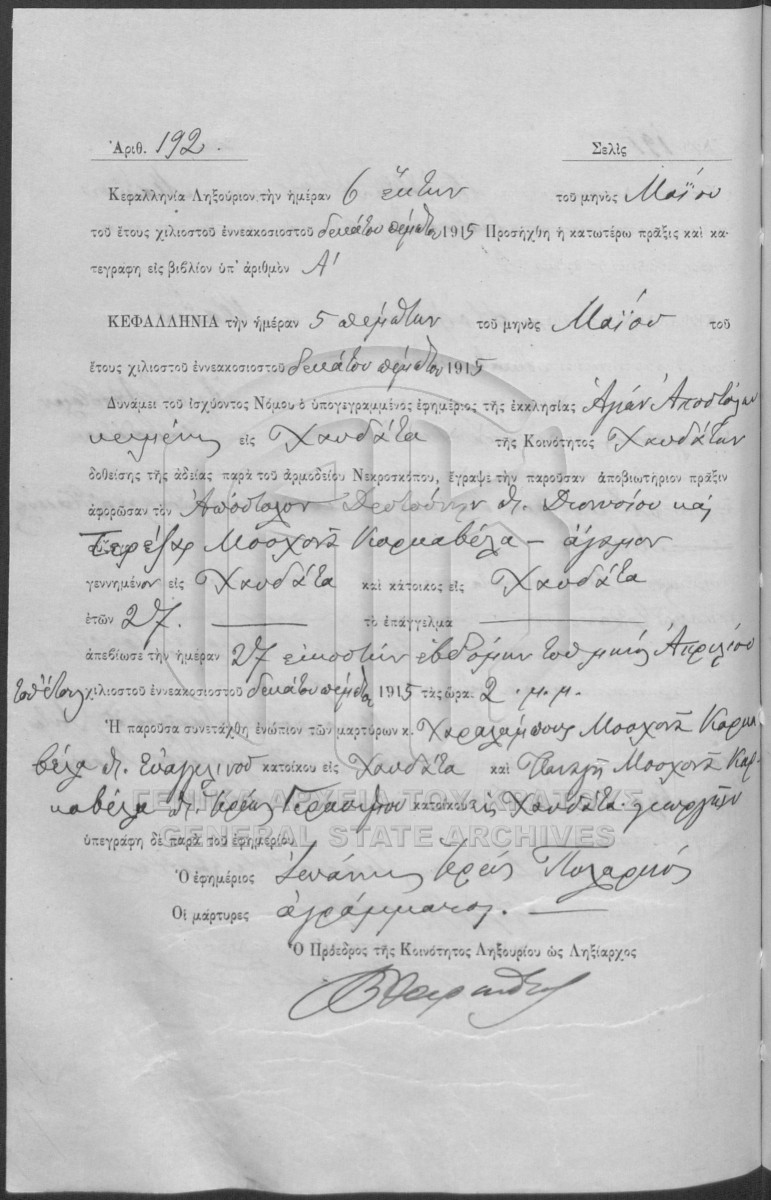 Ἀριθ. 192. Σελὶς
Κεφαλληνία Ληξούριον τὴν ἡμέραν 6 ἕκτην τοῦ μηνὸς Μαΐου
τοῦ ἔτους χιλιοστοῦ ἐννεακοσιοστοῦ δεκάτου πέμπτου 1915 Προσήχθη ἡ κατωτέρω πρᾶξις καὶ κα-
τεγράφη εἰς βιβλίον ὑπ' ἀριθμὸν Α'
ΚΕΦΑΛΛΗΝΙΑ τὴν ἡμέραν 5 πέμπτην τοῦ μηνὸς Μαΐου τοῦ
ἔτους χιλιοστοῦ ἐννεακοσιοστοῦ δεκάτου πέμπτου 1915
Δυνάμει τοῦ ἰσχύοντος Νόμου ὁ ὑπογεγραμμένος ἐφημέριος τῆς ἐκκλησίας Ἁγίων Ἀποστόλων
κειμένης εἰς Χαυδάτα τῆς Κοινότητος Χαυδάτων
δοθείσης τῆς ἀδείας παρὰ τοῦ ἁρμοδείου Νεκροσκόπου, ἔγραψε τὴν παροῦσαν ἀποβιωτήριον πρᾶξιν
ἀφορῶσαν τὸν Ἀπόστολον Διονυσίου καὶ
Τερέζας Μοσχονᾶ Καρκαβέλα – ἄγαμον
γεννημένον εἰς Χαυδάτα καὶ κάτοικος εἰς Χαυδάτα
ἐτῶν 27. τὸ ἐπάγγελμα
ἀπεβίωσε τὴν ἡμέραν 27 εἰκοστὴν ἑβδόμην τοῦ μηνὸς Ἀπριλίου
τοῦ ἔτους χιλιοστοῦ ἐννεακοσιοστοῦ δεκάτου πέμπτου 1915 τὰς ὥρα. 2 . μ. μ.
Ἡ παροῦσα συνετάχθη ἐνώπιον τῶν μαρτύρων κ. Χαραλάμπους Μοσχονᾶ Καρκα
βέλα Εὐαγγελινοῦ κατοίκου εἰς Χαυδάτα καὶ Παναγῆ Μοσχονᾶ Καρ-
καβέλα ἱερέως Γερασίμου κατοίκου εἰς Χαυδάτα. γεωργῶν
ΓΕΝΙΚΑ ΑΡΧΕΙΑ ΤΟΥ ΚΡΑΤΟΥΣ
GENERAL STATE ARCHIVES
ὑπεγράφη δὲ παρὰ τοῦ ἐφημερίου
Ὁ ἐφημέριος Ἰωάννης ἱερεὺς
Οἱ μάρτυρες ἀγράμματοι.
Ὁ Πρόεδρος τῆς Κοινότητος Ληξουρίου ὡς Ληξίαρχος